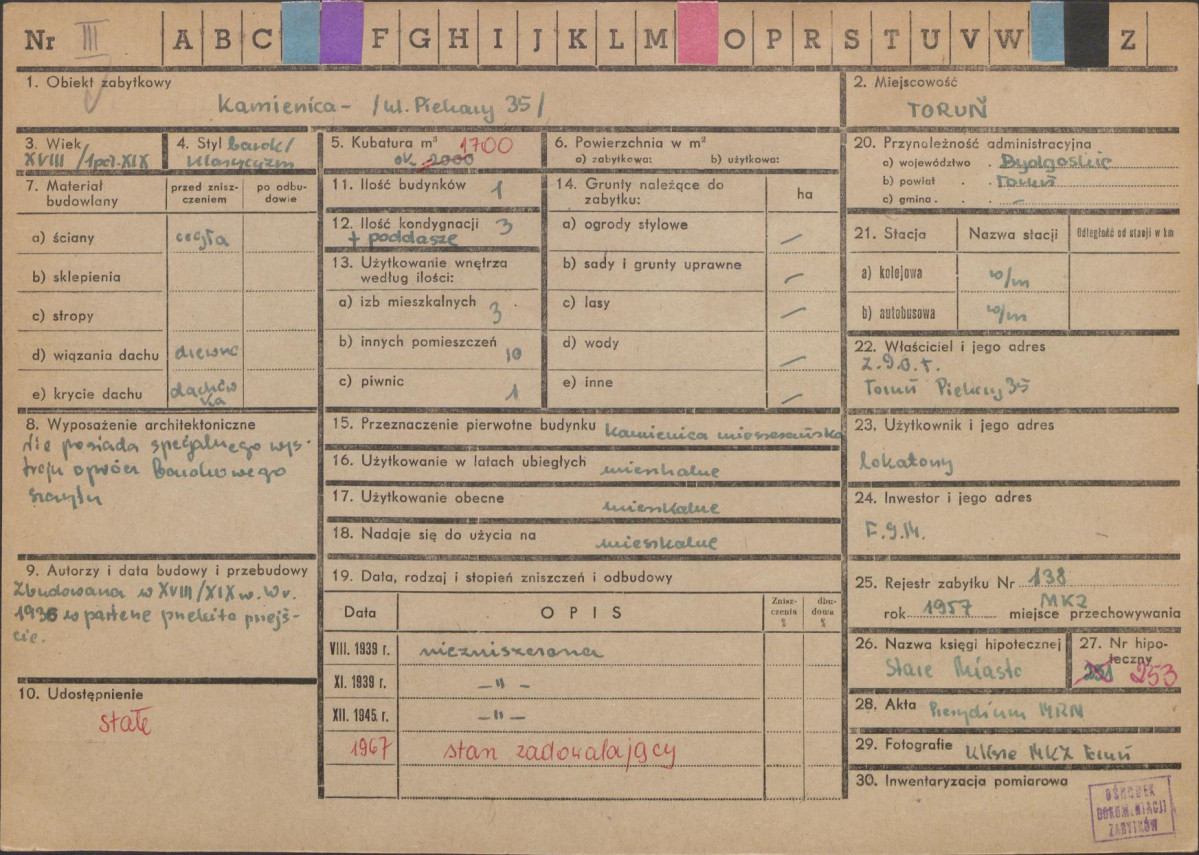 Nr III A B C F G H I J K L M O P R S T U V W Z
1. Obiekt zabytkowy
Kamienica - /ul. Piekary 35/
2. Miejscowość
TORUŃ
3. Wiek
XVIII /1poł. XIX
4. Styl barok/
klasycyzm
5. Kubatura m³ 1700
ok. 2000
6. Powierzchnia w m²
a) zabytkowa: b) użytkowa:
7. Materiał budowlany
przed znisz-
czeniem
po odbu-
dowie
a) ściany cegła
b) sklepienia
c) stropy
d) wiązania dachu drewno
e) krycie dachu dachów
ka
8. Wyposażenie architektoniczne
Nie posiada specjalnego wys-
troju oprócz barokowego
szczytu
9. Autorzy i data budowy i przebudowy
Zbudowana w XVIII/XIX w. W r.
1936 w parterze przebito przejś-
cie.
10. Udostępnienie
stałe
11. Ilość budynków 1
12. Ilość kondygnacji 3
+ poddasze
13. Użytkowanie wnętrza
według ilości:
a) izb mieszkalnych 3
b) innych pomieszczeń 10
c) piwnic 1
14. Grunty należące do
zabytku:
ha
a) ogrody stylowe —
b) sady i grunty uprawne —
c) lasy —
d) wody —
e) inne —
15. Przeznaczenie pierwotne budynku kamienica mieszczańska
16. Użytkowanie w latach ubiegłych mieszkalne
17. Użytkowanie obecne mieszkalne
18. Nadaje się do użycia na mieszkalne
19. Data, rodzaj i stopień zniszczeń i odbudowy
Data OPIS
Znisz-
czenia
%
dbu-
dowa
%
VIII. 1939 r. niezniszczona
XI. 1939 r. — " —
XII. 1945. r. — " —
1967 stan zadowalający
20. Przynależność administracyjna
a) województwo Bydgoskie
b) powiat Toruń
c) gmina —
21. Stacja Nazwa stacji Odległość od stacji w km
a) kolejowa w/m
b) autobusowa w/m
22. Właściciel i jego adres
Toruń Piekary 35
23. Użytkownik i jego adres
lokatorzy
24. Inwestor i jego adres
F.G.M.
25. Rejestr zabytku Nr 138
rok 1957 miejsce przechowywania
MKZ
26. Nazwa księgi hipotecznej
Stare Miasto
27. Nr hipo-
teczny
251 253
28. Akta Prezydium MRN
29. Fotografie Klisze MKZ Toruń
30. Inwentaryzacja pomiarowa
OŚRODEK
DOKUMENTACJI
ZABYTKÓW